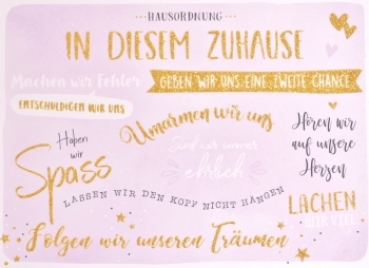 HAUSORDNUNG
IN DIESEM ZUHAUSE
Machen wir Fehler
GEBEN WIR UNS EINE ZWEITE CHANCE
ENTSCHULDIGEN WIR UNS
Umarmen wir uns
Haben
wir
Spass
Sind wir immer
ehrlich
Hören wir
auf unsere
Herzen
LASSEN WIR DEN KOPF NICHT HÄNGEN
LACHEN
WIR VIEL
Folgen wir unseren Träumen